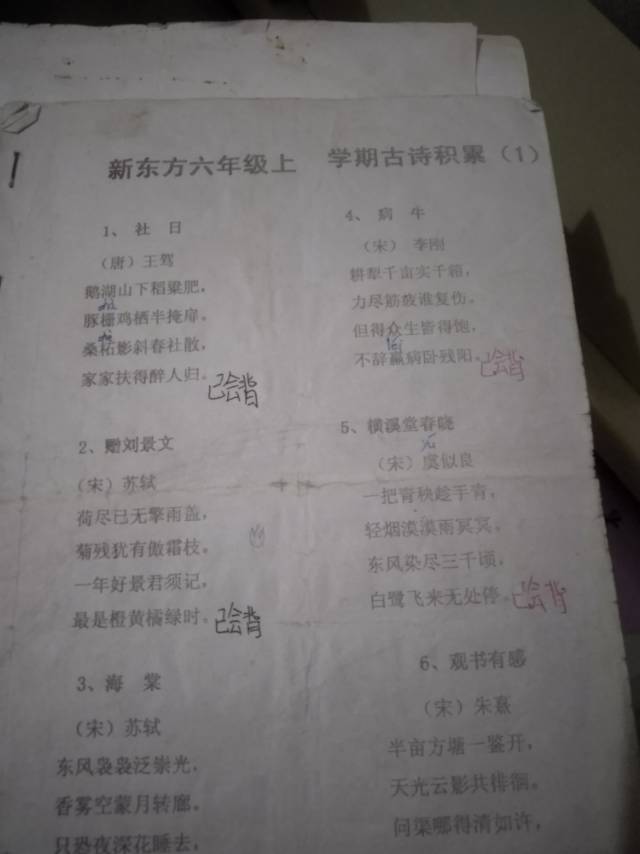 新东方六年级上 学期古诗积累（1）
1、社 日
（唐）王驾
鹅湖山下稻粱肥，
豚栅鸡栖半掩扉。
桑柘影斜春社散，
家家扶得醉人归。
已会背
2、赠刘景文
（宋）苏轼
荷尽已无擎雨盖，
菊残犹有傲霜枝。
一年好景君须记，
最是橙黄橘绿时。
已会背
3、海 棠
（宋）苏轼
东风袅袅泛崇光，
香雾空蒙月转廊。
只恐夜深花睡去，
4、病 牛
（宋）李刚
耕犁千亩实千箱，
力尽筋疲谁复伤。
但得众生皆得饱，
不辞羸病卧残阳。
已会背
5、横溪堂春晓
（宋）虞似良
一把青秧趁手青，
轻烟漠漠雨冥冥。
东风染尽三千顷，
白鹭飞来无处停。
已会背
6、观书有感
（宋）朱熹
半亩方塘一鉴开，
天光云影共徘徊。
问渠哪得清如许，